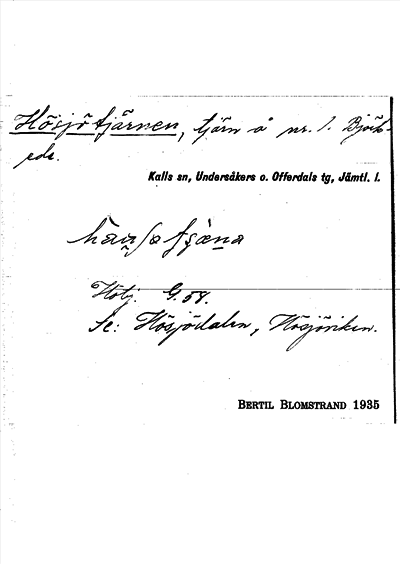 Hösjötjärnen, tjärn å nr. 1. Björk-
ede.
Kalls sn, Undersåkers o. Offerdals tg, Jämtl. l.
Hötj. G. 58.
Se: Hösjödalen, Hösjöviken.
BERTIL BLOMSTRAND 1935